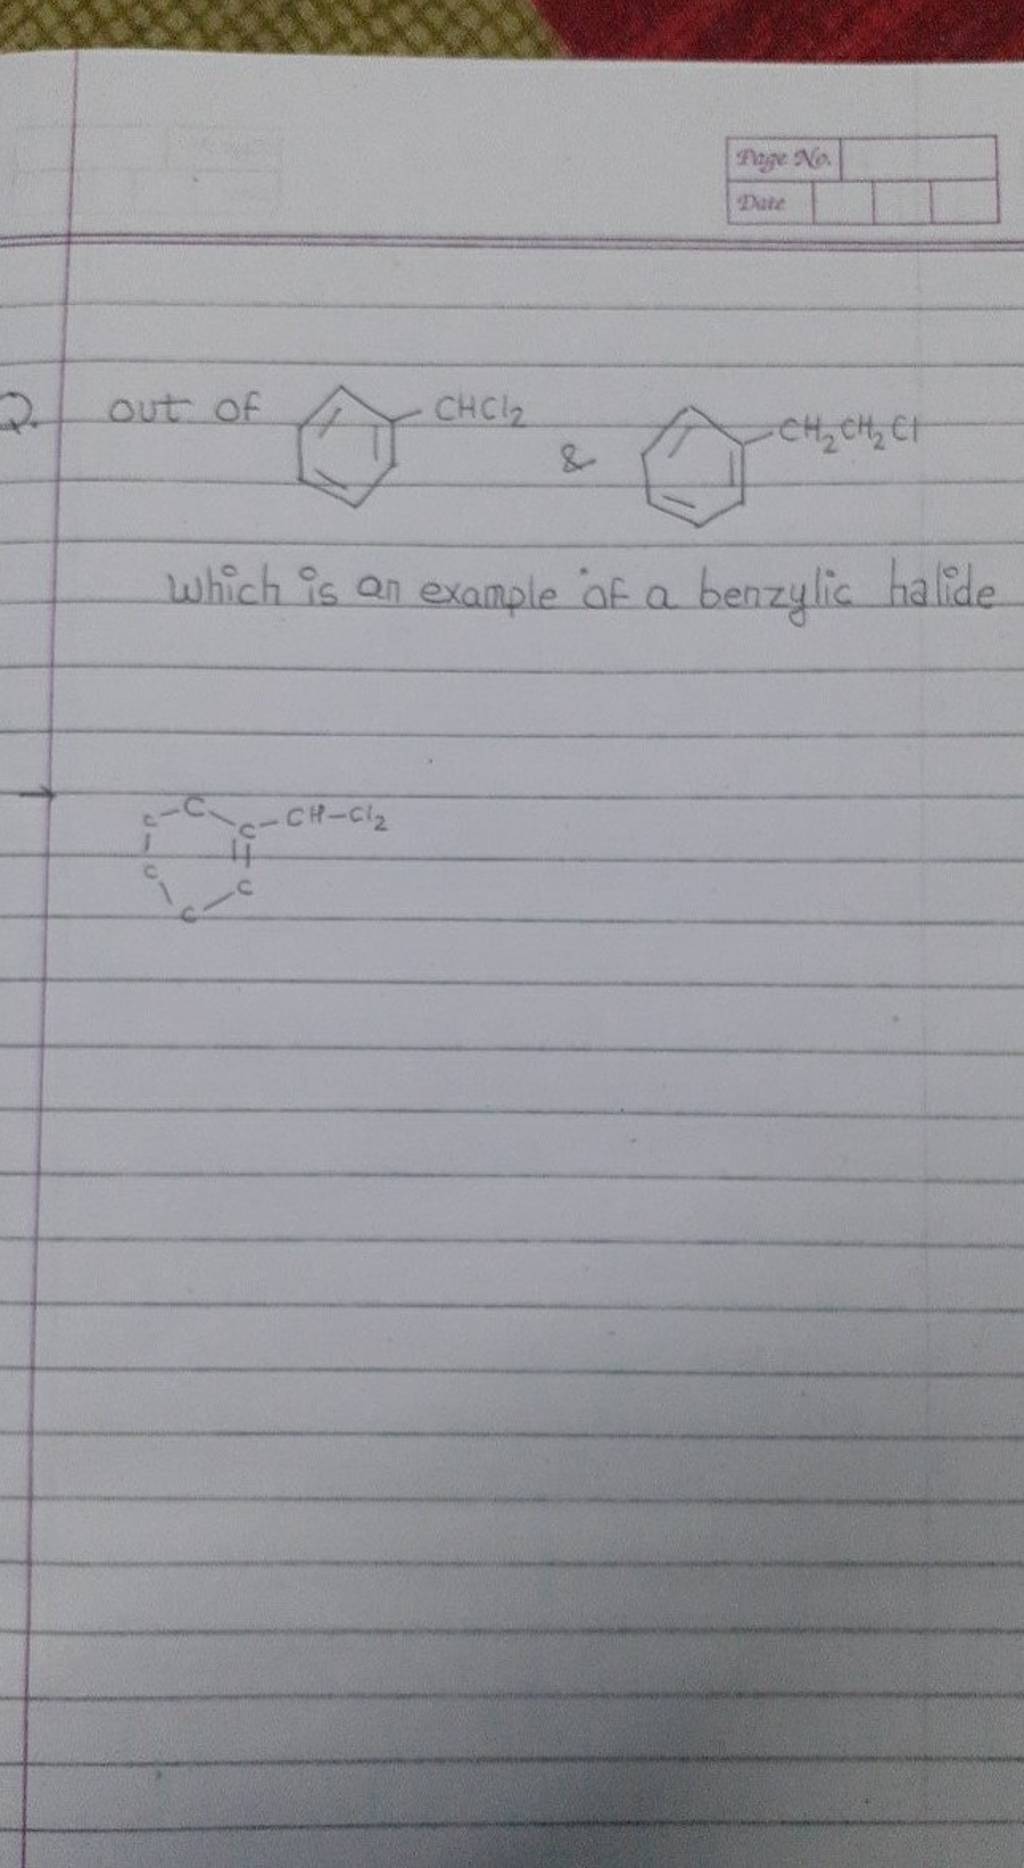 Page No.
Date
Q. out of CHCl₂ & CH₂CH₂Cl
which is an example of a benzylic halide
→
C-C
C-CH-Cl₂
C
C
C